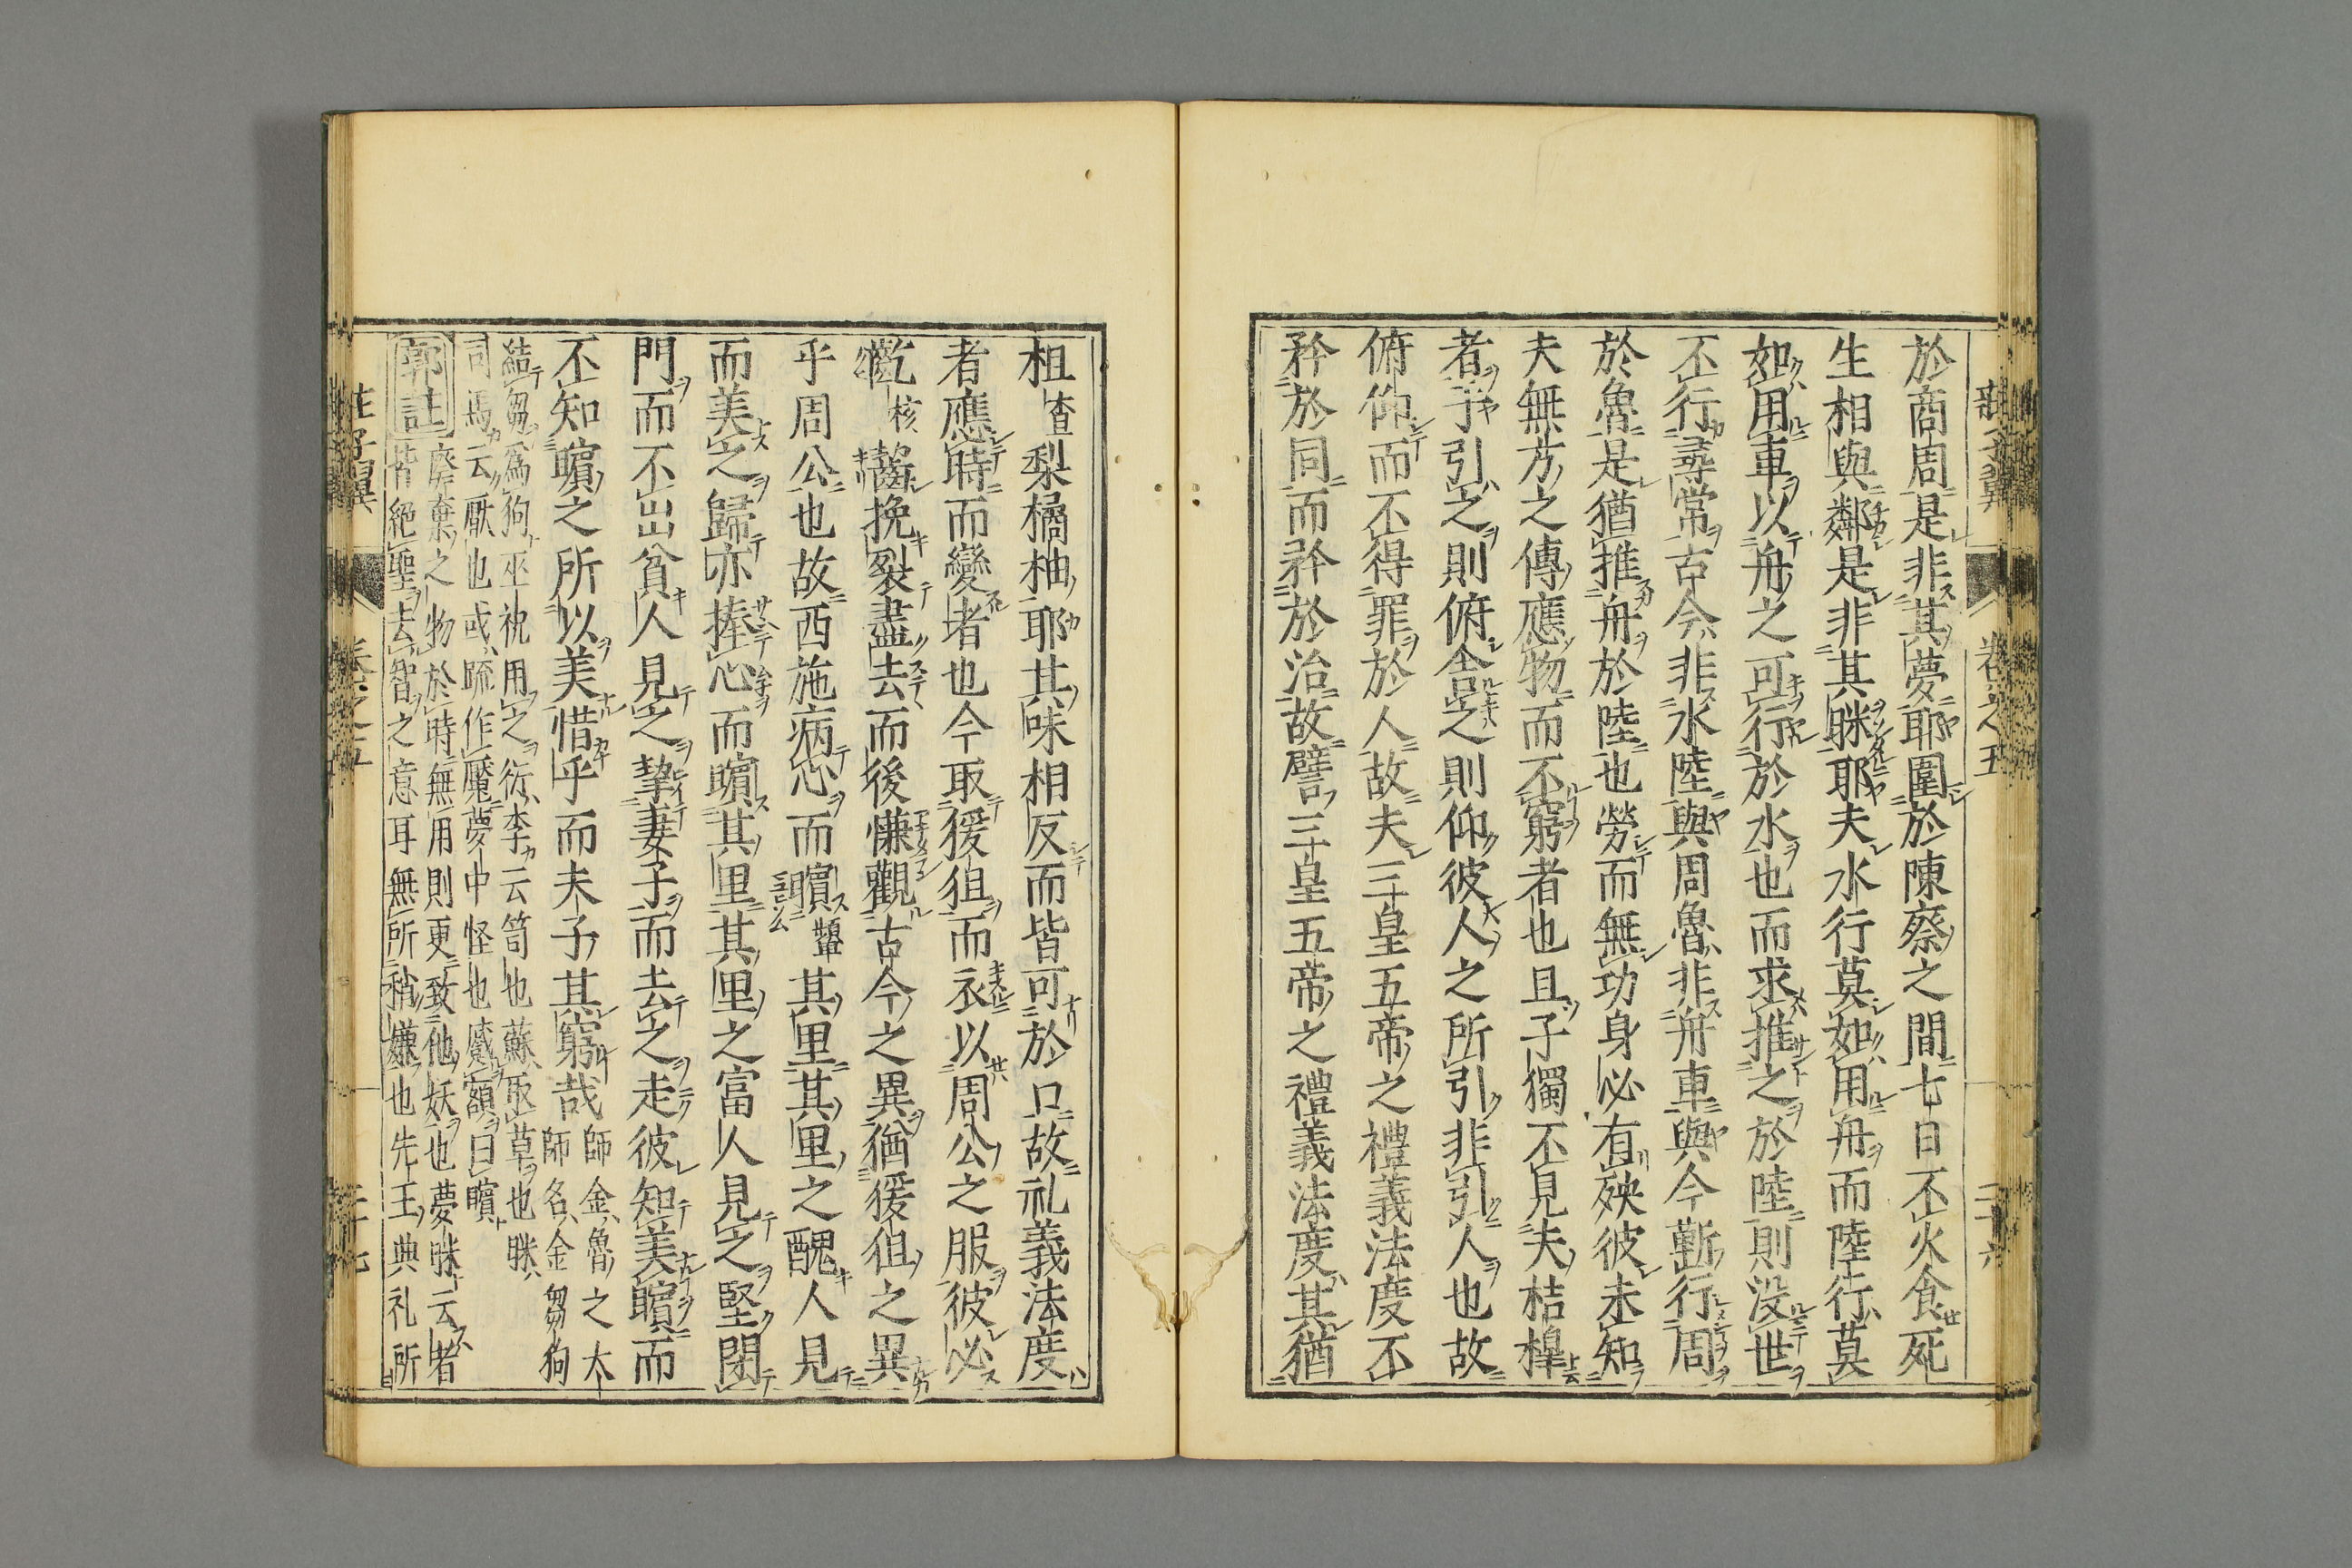 莊子翼 卷之五 二十六
於商周是非其夢耶圍於陳蔡之間七日不火食死
生相與鄰是非其眯耶夫水行莫如用舟而陸行莫
如用車以舟之可行於水也而求推之於陸則没世
不行尋常古今非水陸與周魯非舟車與今蘄行周
於魯是猶推舟於陸也勞而無功身必有殃彼未知
夫無方之傳應物而不窮者也且子獨不見夫桔槔
者乎引之則俯舍之則仰彼人之所引非引人也故
俯仰而不得罪於人故夫三皇五帝之禮義法度不
矜於同而矜於治故譬三皇五帝之禮義法度其猶
柤查梨橘柚耶其味相反而皆可於口故礼義法度
者應時而變者也今取猨狙而衣以周公之服彼必
齕核齧挽裂盡去而後慊觀古今之異猶猨狙之異
乎周公也故西施病心而矉顰其里其里之醜人見
而美之歸亦捧心而矉其里其里之富人見之堅閉
門而不出貧人見之挈妻子而去之走彼知美矉而
不知矉之所以美惜乎而夫子其窮哉師金魯之太
師名金芻狗
結芻爲狗巫祝用之衍李云笥也蘇取草也眯
司馬云厭也或䟽作魘夢中怪也蹙額曰矉
郭註 廢棄之物於時無用則更致他妖也夢眯云者
皆絶聖去智之意耳無所稍嫌也先王典礼所
莊子翼 卷之五 二十七